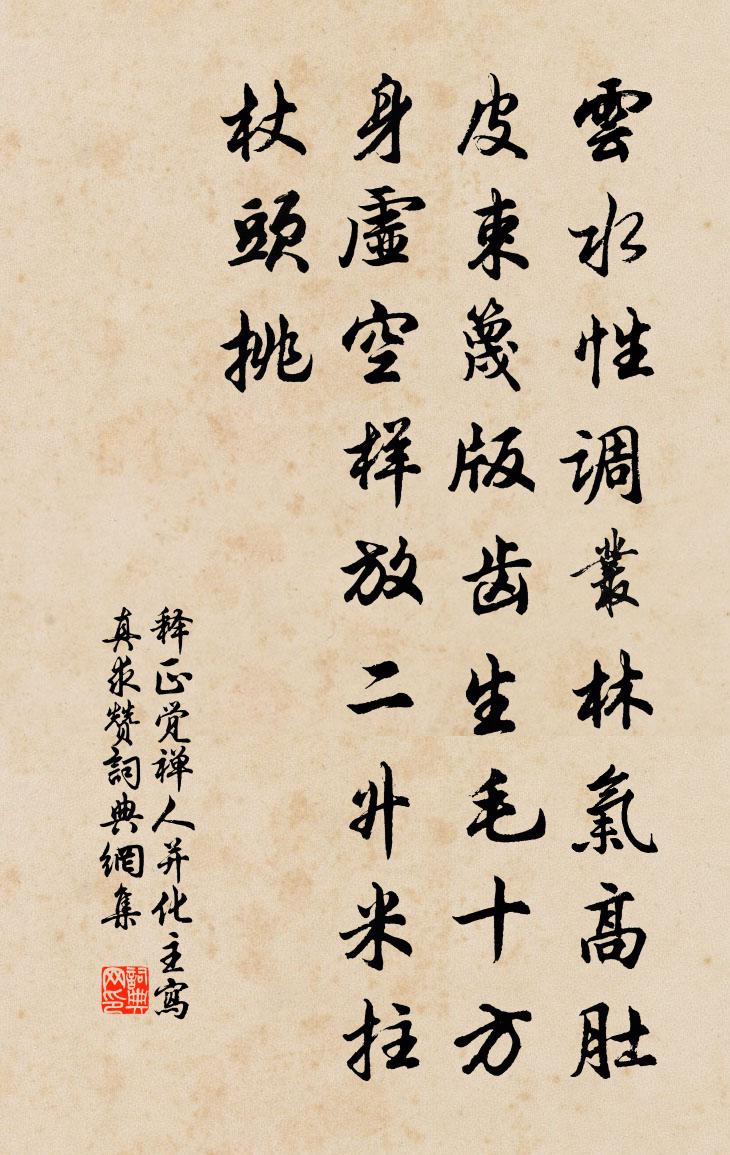 雲水性调叢林氣高肚
皮束篾版齿生毛十方
身虚空样放二升米拄
杖頭挑
释正觉禅人并化主寫
真求赞詞典網集
詞典网印